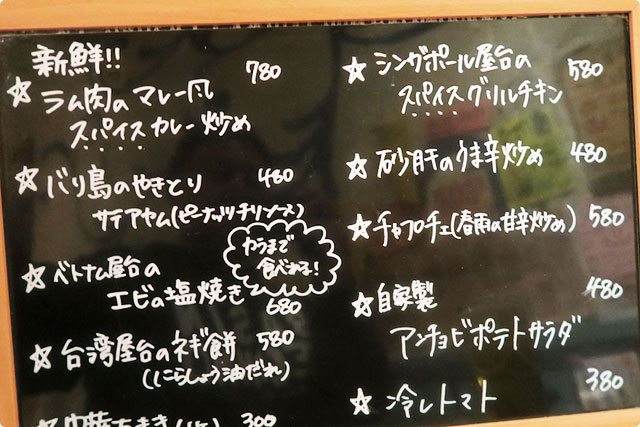 新鮮!!
☆ラム肉のマレー風 780
スパイスカレー炒め
☆バリ島のやきとり 480
サテアヤム(ピーナッツチリソース)
カラまで
食べれる!
☆ベトナム屋台の
エビの塩焼き 680
☆台湾屋台のネギ餅 580
(にらしょう油だれ)
☆中華ちまき 300
☆シンガポール屋台の 580
スパイスグリルチキン
☆砂肝のうま辛炒め 480
☆チャプチェ(春雨の甘辛炒め) 580
☆自家製 480
アンチョビポテトサラダ
☆冷しトマト 380